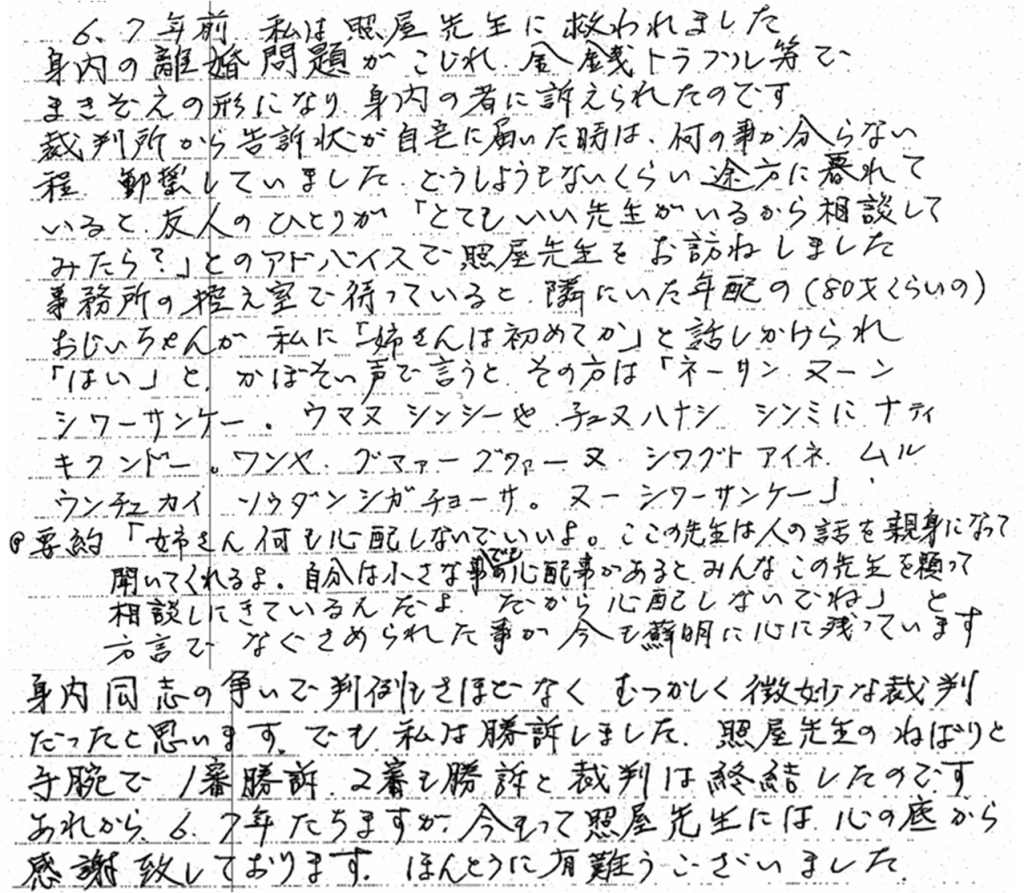 6、7年前 私は照屋先生に救われました
身内の離婚問題がこじれ、金銭トラブル等で
まきぞえの形になり、身内の者に訴えられたのです
裁判所から告訴状が自宅に届いた時は、何の事か分らない
程 動揺していました。どうしようもないくらい途方に暮れて
いると、友人のひとりが「とてもいい先生がいるから相談して
みたら?」とのアドバイスで、照屋先生をお訪ねしました
事務所の控え室で待っていると、隣にいた年配の(80才くらいの)
おじいちゃんが 私に「姉さんは初めてか」と話しかけられ
「はい」と、かぼそい声で言うと その方は「ネーサン ヌーン
シワーサンケー。ウマヌ シンシーや チュヌハナシ シンミに ナティ
キクンドー。ワンヤ、グマァーグヮァーヌ シワグトアイネ、ムル
ウンチュカイ ソウダンシガチョーサ。ヌーシワーサンケー」
@要約「姉さん何も心配しないでいいよ。ここの先生は人の話を親身になって
聞いてくれるよ。自分は小さな事でも心配事があるとみんなこの先生を頼って
相談しにきているんだよ だから心配しないでね」と
方言で なぐさめられた事が今も鮮明に心に残っています
身内同志の争いで判例もさほどなく むつかしく微妙な裁判
だったと思います。でも、私は勝訴しました。照屋先生のねばりと
手腕で 1審勝訴、2審も勝訴と裁判は終結したのです
あれから、6、7年たちますが、今もって照屋先生には、心の底から
感謝致しております。ほんとうに有難うございました。